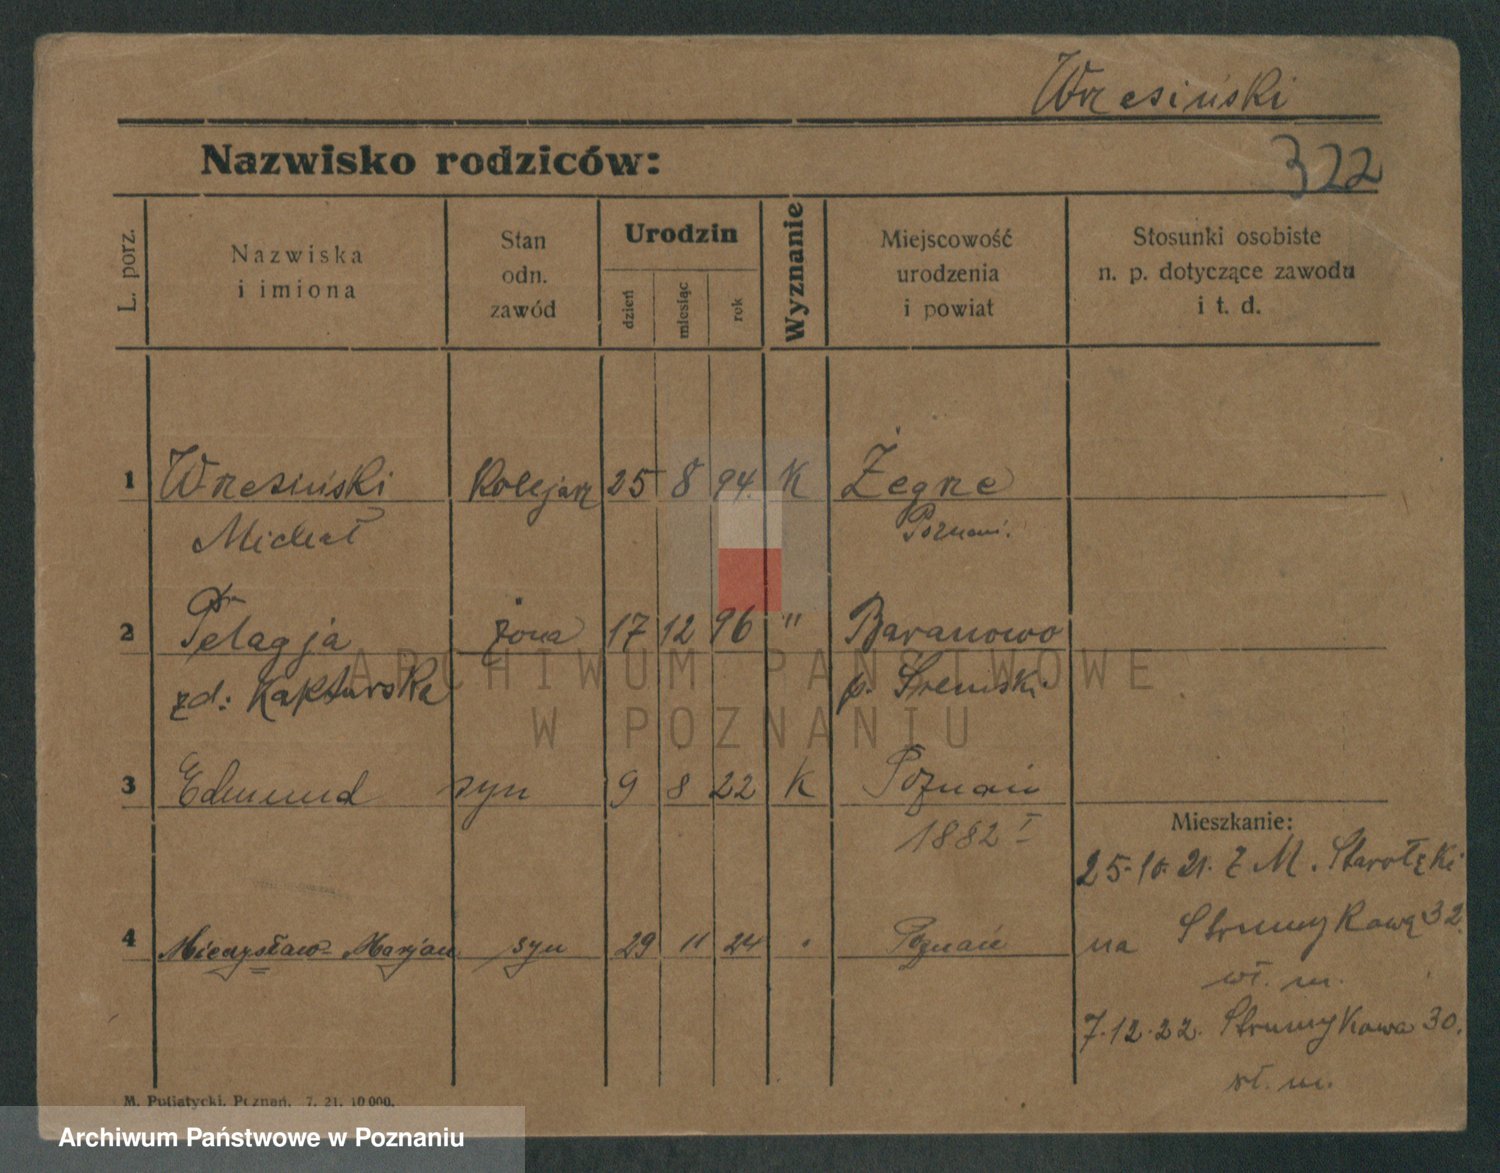 Wrzesiński
Nazwisko rodziców:
322
L. porz.
Nazwiska
i imiona
Stan
odn.
zawód
Urodzin
dzień
miesiąc
rok
Wyznanie
Miejscowość
urodzenia
i powiat
Stosunki osobiste
n. p. dotyczące zawodu
i t. d.
1 Wrzesiński Kolejarz 25 8 94. K Żegrze
Michał Poznań.
2 Pelagja żona 17 12 96 " Baranowo
zd: Kapturska p. Śremski.
3 Edmund syn 9 8 22 K Poznań
1882 I
Mieszkanie:
25.10.21. Z M. Starołęki
4 Mieczysław Marjan syn 29 11 24 Poznań
na Strumykową 32.
wł. m.
7.12.22. Strumykowa 30.
wł. m.
M. Putiatycki, Poznań. 7. 21. 10 000.
ARCHIWUM PAŃSTWOWE
W POZNANIU
Archiwum Państwowe w Poznaniu